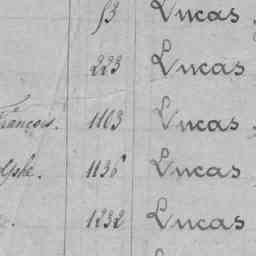 53 Lucas
223 Lucas
François. 1103 Lucas
olphe. 1136 Lucas
1232 Lucas